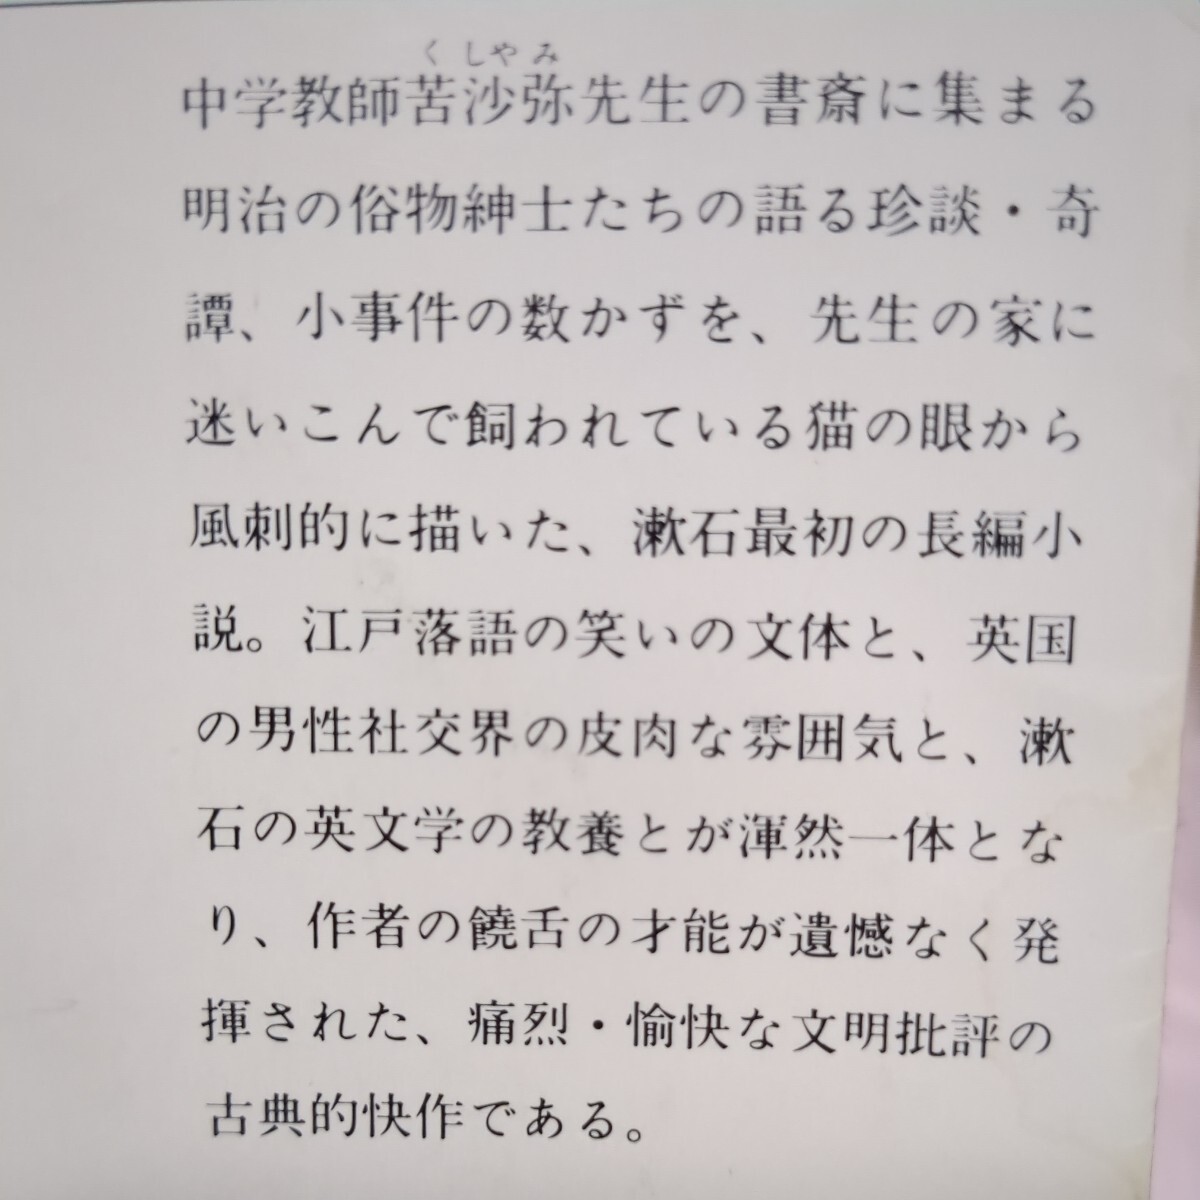 くしやみ
中学教師苦沙弥先生の書斎に集まる
明治の俗物紳士たちの語る珍談・奇
譚、小事件の数かずを、先生の家に
迷いこんで飼われている猫の眼から
風刺的に描いた、漱石最初の長編小
説。江戸落語の笑いの文体と、英国
の男性社交界の皮肉な雰囲気と、漱
石の英文学の教養とが渾然一体とな
り、作者の饒舌の才能が遺憾なく発
揮された、痛烈・愉快な文明批評の
古典的快作である。